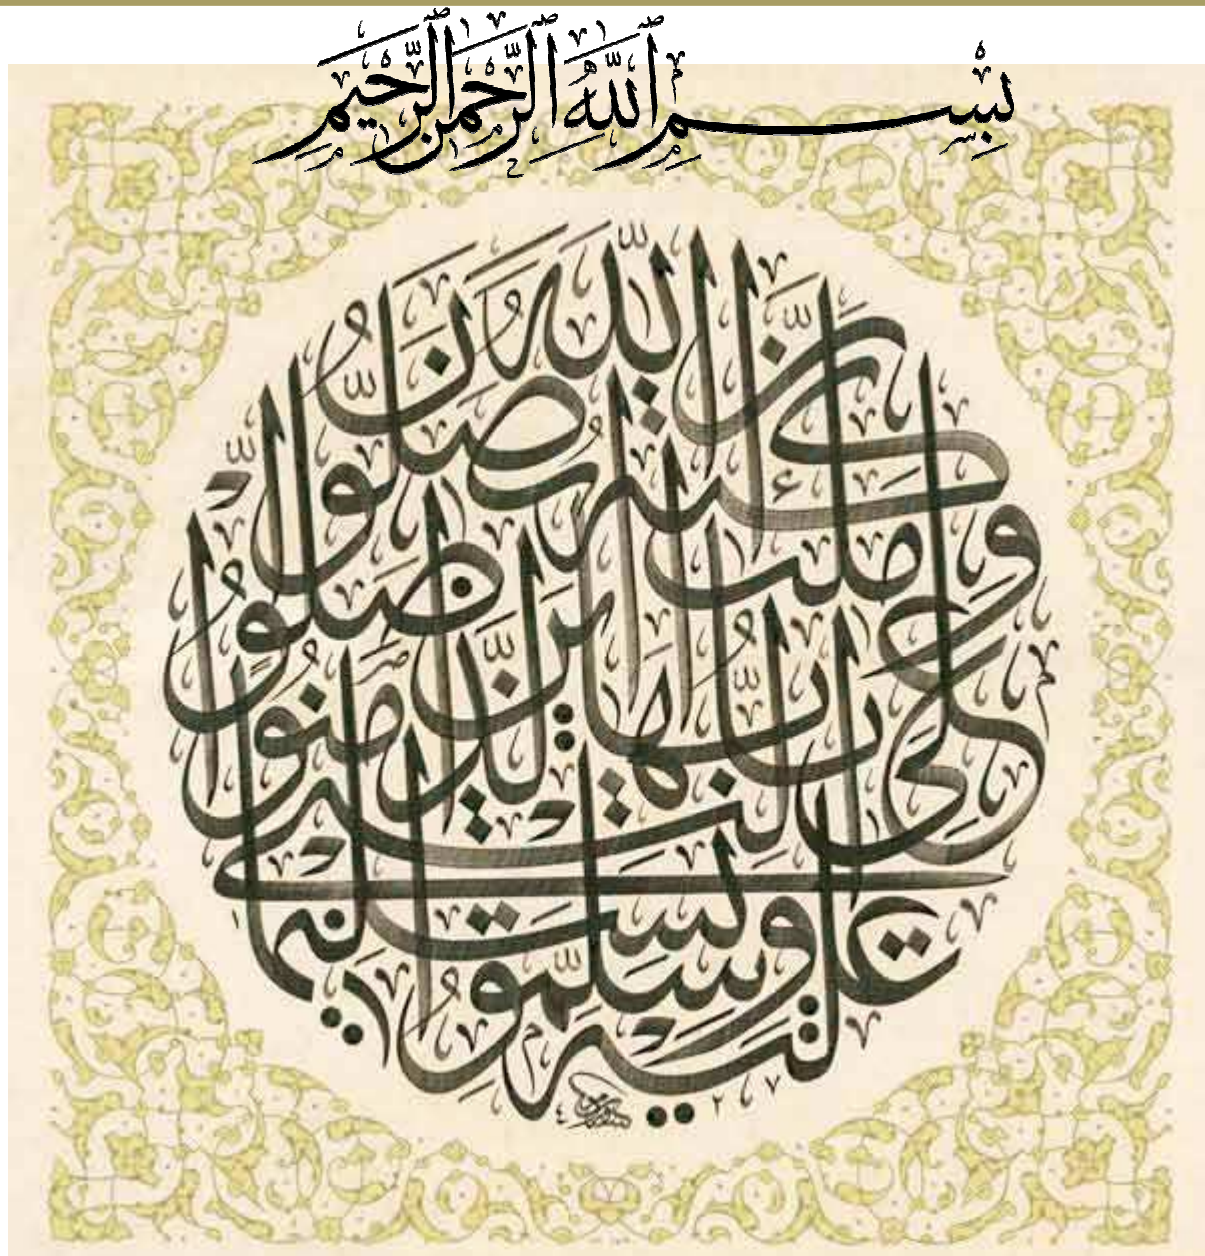 بِسْمِ اللَّهِ الرَّحْمَنِ الرَّحِيمِ
إِنَّ اللَّهَ وَمَلَائِكَتَهُ يُصَلُّونَ عَلَى النَّبِيِّ يَا أَيُّهَا الَّذِينَ آمَنُوا صَلُّوا عَلَيْهِ وَسَلِّمُوا تَسْلِيمًا